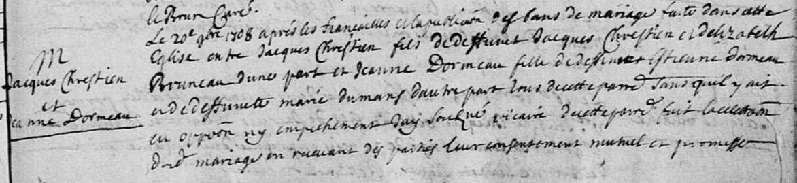 M
Jacques Chrestien
et
Jeanne Dormeau
Le 20e 9bre 1708 apres les fiançailles et la publicaon des bans de mariage faite dans cette
Eglise entre Jacques Chrestien fils de deffunct Jacques Chrestien et delizabeth
Bruneau dune part et Jeanne Dormeau fille de deffunct Estienne dormeau
et de deffuncte marie dumans dautre part tous de cette parre sans quil y ait
eu oppoon ny empechement Jay vicaire de cette parre fait la
dud mariage en recevant des parties leur consentement mutuel et promesse